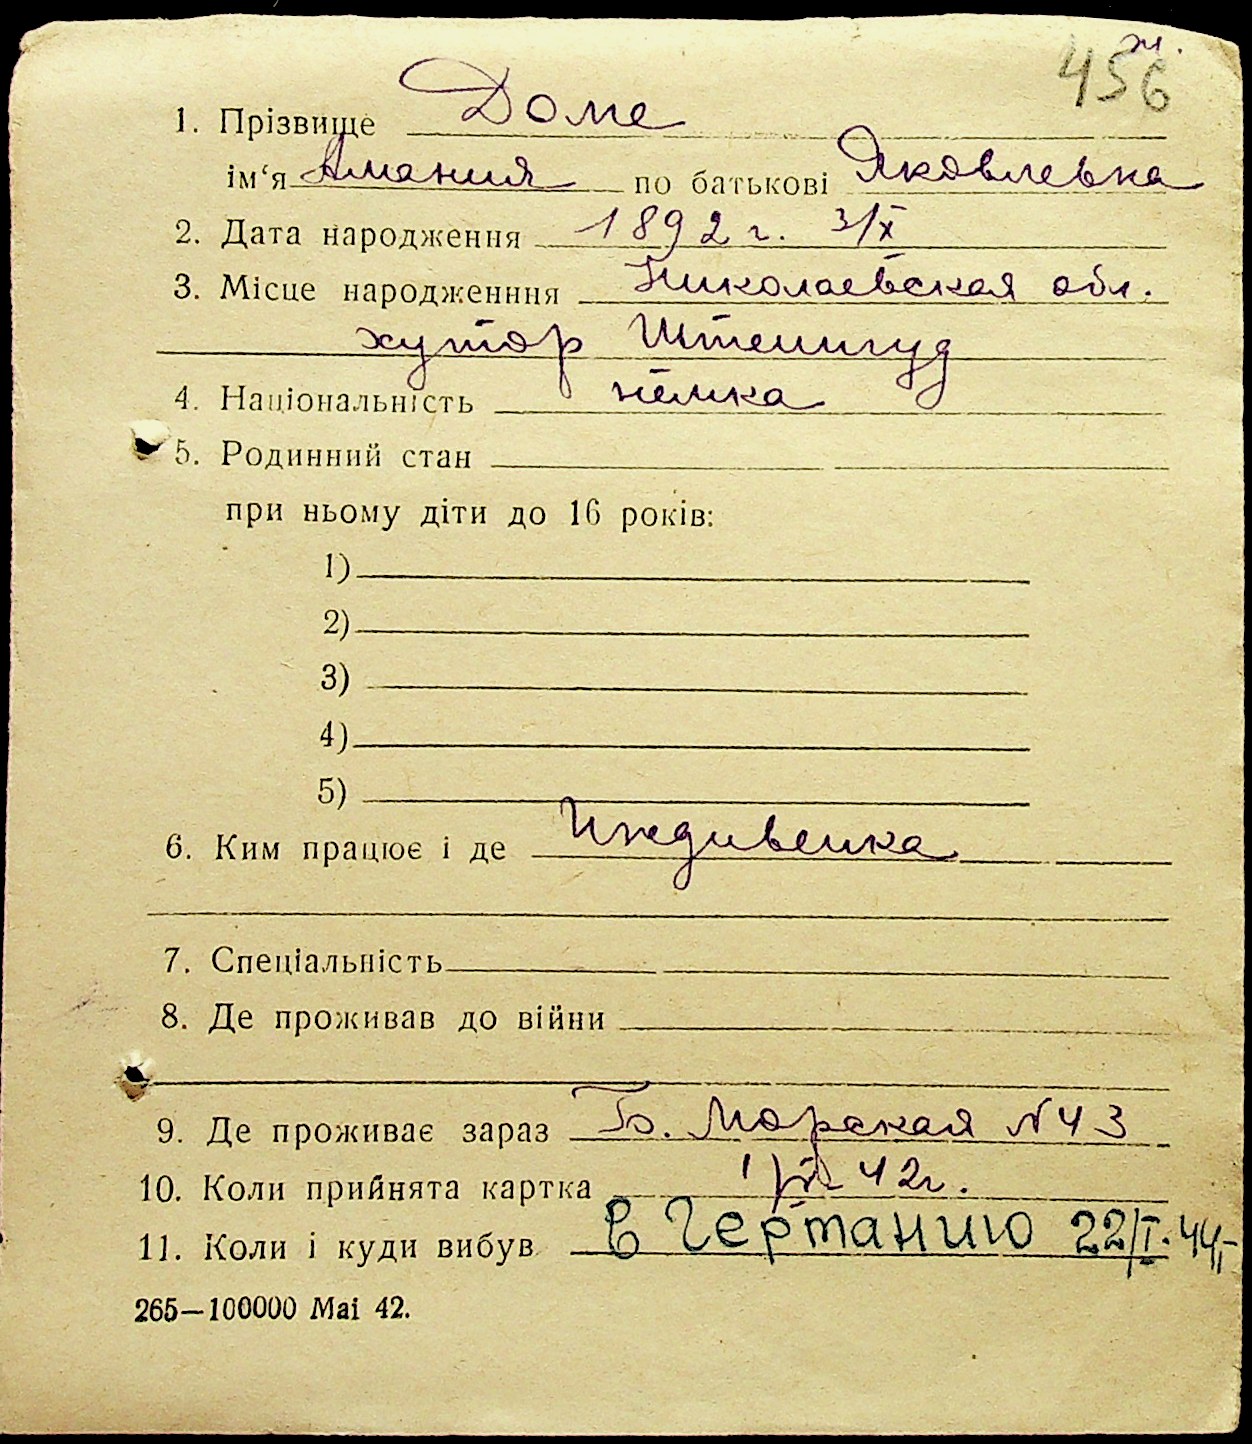 ж.
456
1. Прізвище Доме
ім‘я Амания по батькові Яковлевна
2. Дата народження 1892 г. 3/X
3. Місце народженння Николаевская обл.
хутор Штейнгуд
4. Національність немка
5. Родинний стан
при ньому діти до 16 років:
1)
2)
3)
4)
5)
6. Ким працює і де Иждивенка
7. Спеціальність
8. Де проживав до війни
9. Де проживає зараз Б. Морская N 43
10. Коли прийнята картка 42г.
11. Коли і куди вибув в Германию 22/I. 44
265—100000 Mai 42.